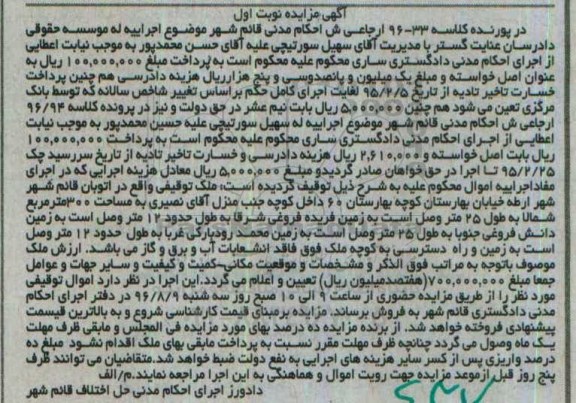 آگهی مزایده نوبت اول
در پرونده کلاسه ۳۳-۹۶ ارجاعی ش احکام مدنی قائم شهر موضوع اجراییه له موسسه حقوقی
دادرسان عنایت گستر با مدیریت آقای سهیل سورتیچی علیه آقای حسن محمدپور به موجب نیابت اعطایی
از اجرای احکام مدنی دادگستری ساری محکوم علیه محکوم است به پرداخت مبلغ ۱۰۰,۰۰۰,۰۰۰ ریال به
عنوان اصل خواسته و مبلغ یک میلیون و پانصدوسی و پنج هزارریال هزینه دادرسی هم چنین پرداخت
خسارت تاخیر تادیه از تاریخ ۹۵/۲/۵ لغایت اجرای کامل حکم براساس تغییر شاخص سالانه که توسط بانک
مرکزی تعین می شود هم چنین ۵,۰۰۰,۰۰۰ ریال بابت نیم عشر در حق دولت و نیز در پرونده کلاسه ۹۶/۹۴
ارجاعی ش احکام مدنی قائم شهر موضوع اجراییه له سهیل سورتیچی علیه حسین محمدپور به موجب نیابت
اعطایی از اجرای احکام مدنی دادگستری ساری محکوم علیه محکوم است به پرداخت ۱۰۰,۰۰۰,۰۰۰
ریال بابت اصل خواسته و ۲,۶۱۰,۰۰۰ ریال هزینه دادرسی و خسارت تاخیر تادیه از تاریخ سررسید چک
۹۵/۲/۲۵ تا اجرا در حق خواهان صادر گردیدو مبلغ ۵,۰۰۰,۰۰۰ ریال معادل هزینه اجرایی که در اجرای
مفاداجراییه اموال محکوم علیه به شرح ذیل توقیف گردیده است: ملک توقیفی واقع در اتوبان قائم شهر
ارطه خیابان بهارستان کوچه بهارستان ۶۰ داخل کوچه جنب منزل آقای نصیری به مساحت ۳۰۰مترمربع
شمالا به طول ۲۵ متر وصل است به زمین فریده فروغی شرقا به طول حدود ۱۲ متر وصل است به زمین
دانش فروغی جنوبا به طول ۲۵ متر وصل است به زمین محمد رودبارکی غربا به طول حدود ۱۲ متر وصل
است به زمین و راه دسترسی به کوچه ملک فوق فاقد انشعابات آب و برق و گاز می باشد. ارزش ملک
موصوف باتوجه به مراتب فوق الذکر و مشخصات و موقعیت مکانی-کمیت و کیفیت و سایر جهات و عوامل
جمعا مبلغ ۷۰۰,۰۰۰,۰۰۰(هفتصدمیلیون ریال) تعیین و اعلام می گردد.این اجرا در نظر دارد اموال توقیفی
مورد نظر را از طریق مزایده حضوری از ساعت ۹ الی ۱۰ صبح روز سه شنبه ۹۶/۸/۹ در دفتر اجرای احکام
مدنی دادگستری قائم شهر به فروش برساند. مزایده برمبنای قیمت کارشناسی شروع و به بالاترین قیمت
پیشنهادی فروخته خواهد شد. از برنده مزایده ده درصد بهای مورد مزایده فی المجلس و مابقی ظرف مهلت
یک ماه وصول می گردد چنانچه ظرف مهلت مقرر نسبت به پرداخت مابقی بهای ملک اقدام نشود مبلغ ده
درصد واریزی پس از کسر سایر هزینه های اجرایی به نفع دولت ضبط خواهد شد.متقاضیان می توانند ظرف
پنج روز قبل ازموعد مزایده جهت رویت اموال و هماهنگی به این اجرا مراجعه نمایند.م/الف
دادورز اجرای احکام مدنی حل اختلاف قائم شهر